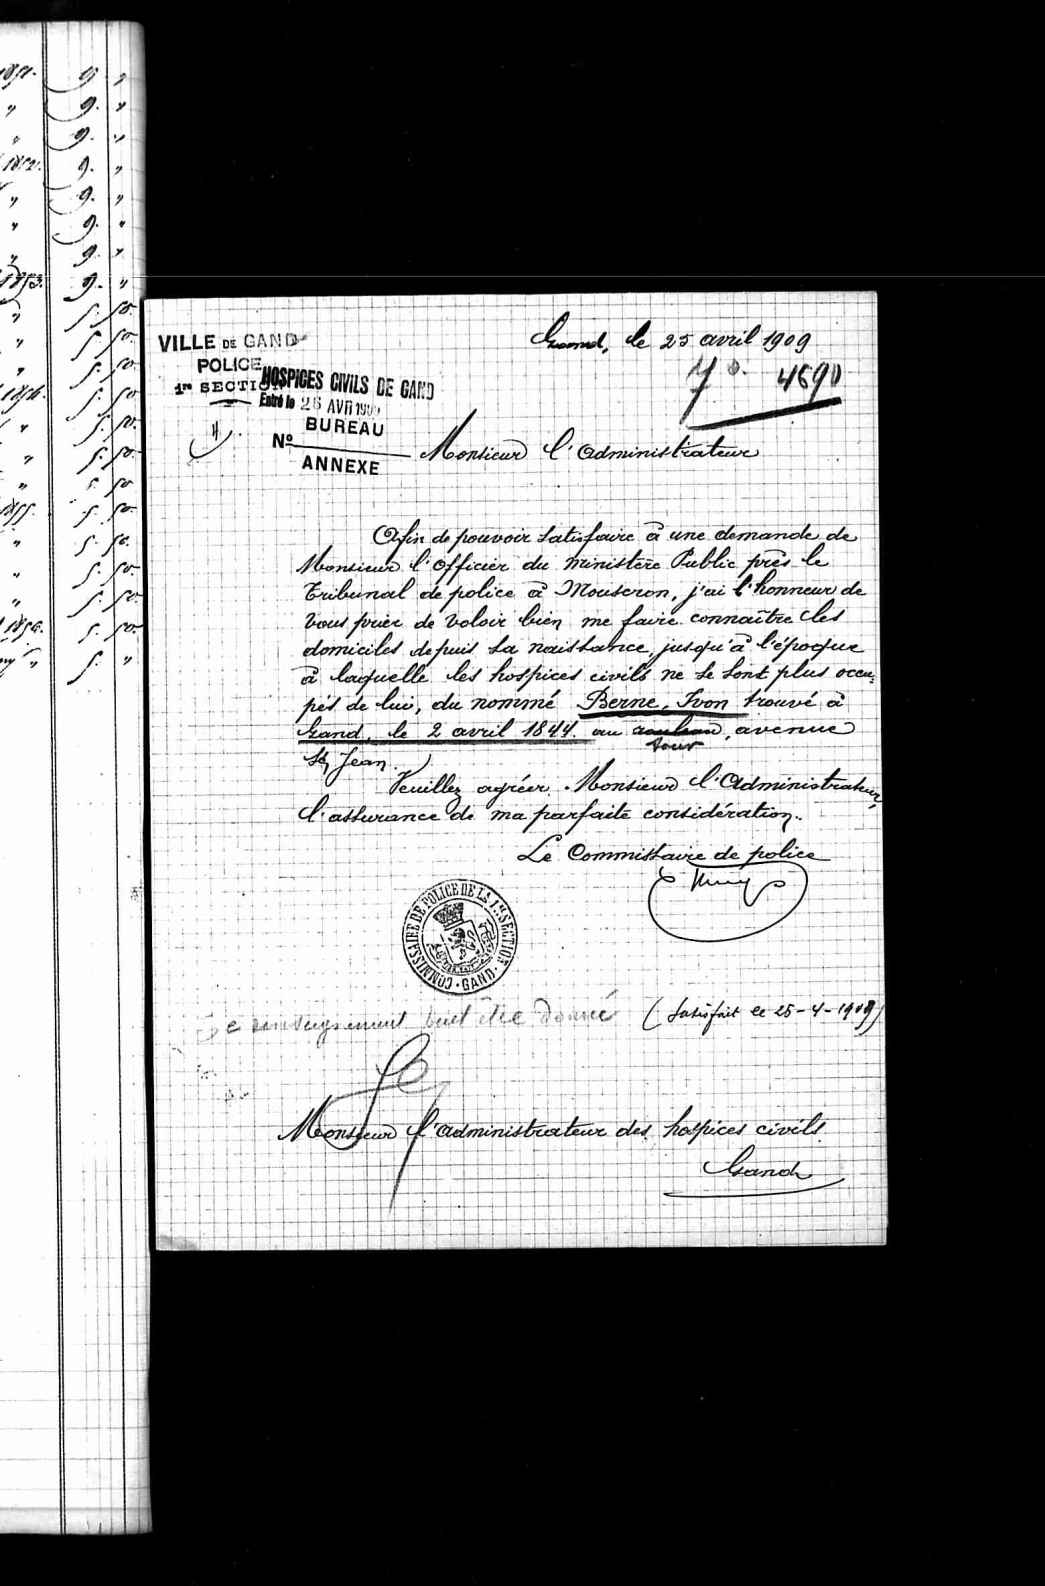 1851. 9 "
" 9. "
" 9. "
1852. 9. "
" 9. "
" 9. "
" 9. "
1853. 9. "
" 5. 50.
" 5. 50.
" 5. 50.
1854. 5. 50.
" 5. 50.
" 5. 50.
" 5. 50.
1855. 5. 50.
" 5. 50.
" 5. 50.
" 5. 50.
1856. 5. 50.
" 5. "
VILLE DE GAND
POLICE
1re SECTION
HOSPICES CIVILS DE GAND
Entré le 26 AVR 1909
BUREAU
No
ANNEXE
Gand, le 25 avril 1909
4690
Monsieur l'Administrateur
Afin de pouvoir satisfaire à une demande de
Monsieur l'Officier du ministère Public près le
Tribunal de police à Mouscron, j'ai l'honneur de
vous prier de voloir bien me faire connaître les
domiciles depuis sa naissance, jusqu'à l'époque
à laquelle les hospices civils ne se sont plus occu-
pés de lui, du nommé Berne, Ivon trouvé à
Gand, le 2 avril 1844. au tour, avenue
St Jean.
Veuillez agréer, Monsieur l'Administrateur,
l'assurance de ma parfaite considération.
Le Commissaire de police
COMMISSAIRE DE POLICE DE LA 1re SECTION · GAND ·
Ce renseignement peut être donné
(satisfait le 25-4-1909)
Monsieur l'administrateur des hospices civils
Gand